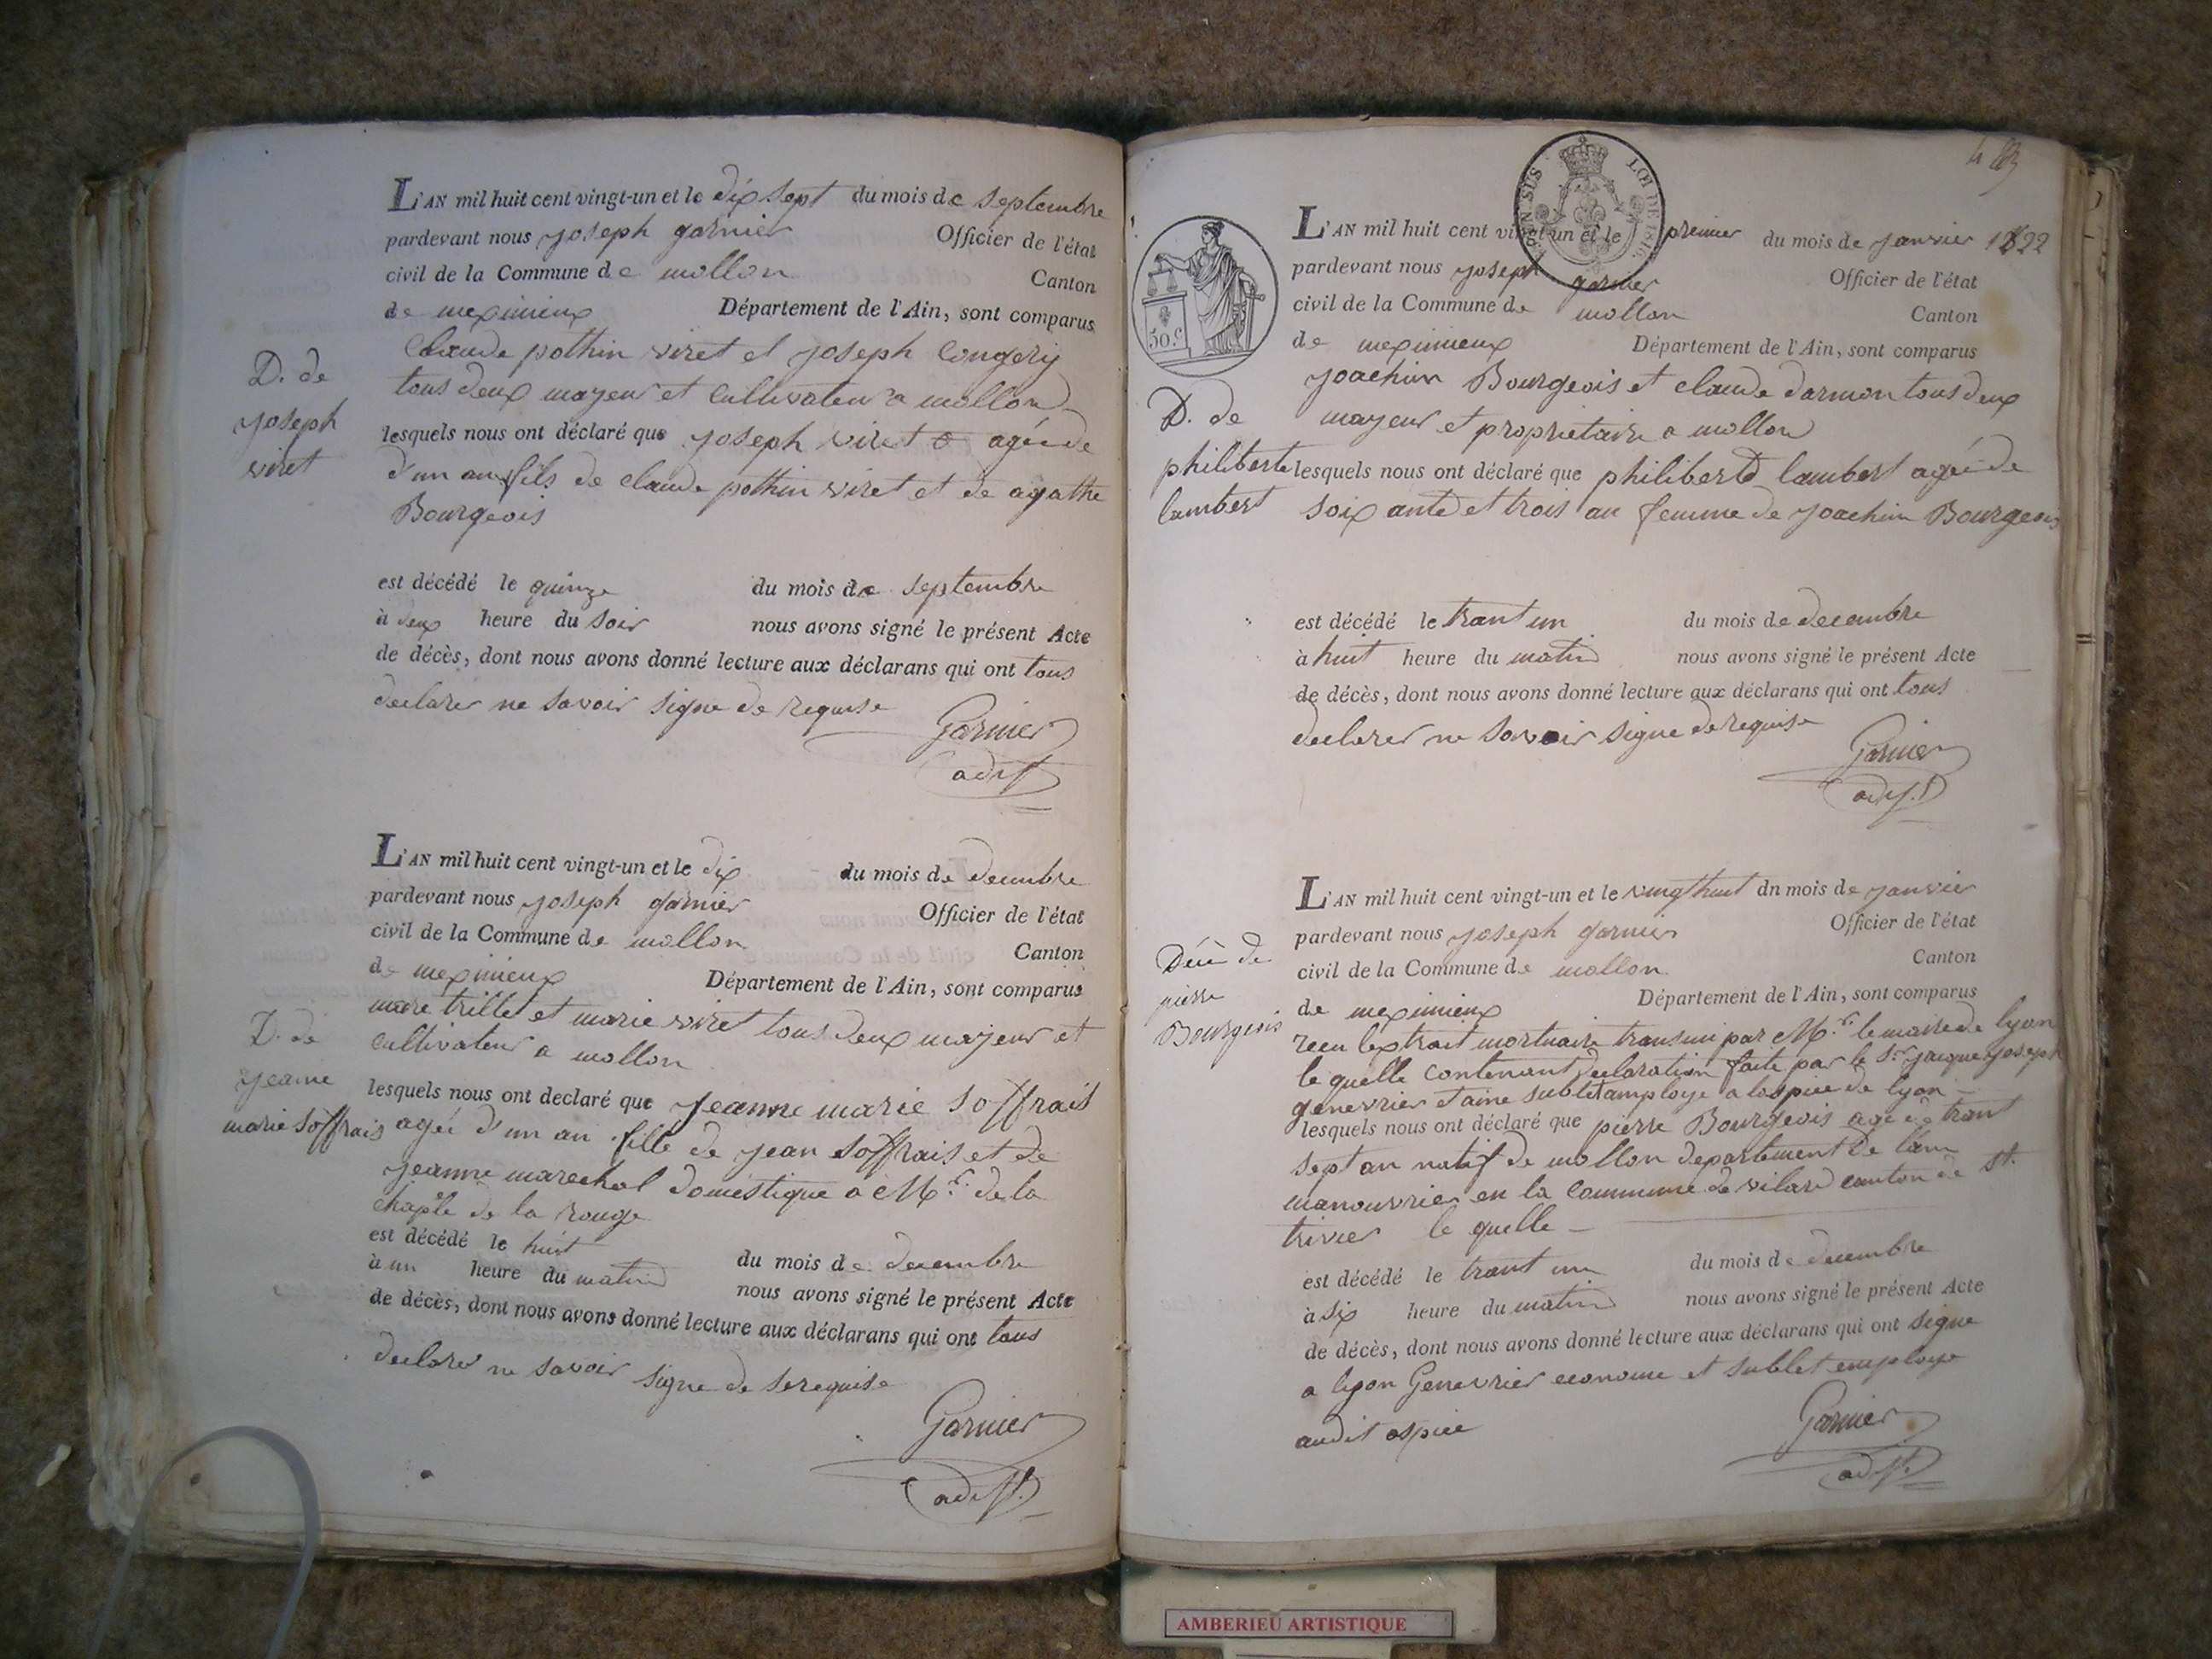 L'AN mil huit cent vingt-un et le dix sept du mois de septembre
pardevant nous joseph garnier Officier de l'état
civil de la Commune de mollon Canton
de meximieux Département de l'Ain, sont comparus
Claude pothin viret et joseph Congery
tous deux mayeur et Cultivateur a mollon
D. de
joseph
viret
lesquels nous ont déclaré que joseph viret agée de
d'un an fils de claude pothin viret et de agathe
Bourgeois
est décédé le quinze du mois de septembre
à deux heure du soir nous avons signé le présent Acte
de décès, dont nous avons donné lecture aux déclarans qui ont tous
declarer ne savoir signe de requise
Garnier
adjt
L'AN mil huit cent vingt-un et le dix du mois de decembre
pardevant nous joseph garnier Officier de l'état
civil de la Commune de mollon Canton
de meximieux Département de l'Ain, sont comparus
trillet et marie viret tous deux mayeur et
cultivateur a mollon
D. de
jeanne
marie soffrais
lesquels nous ont declaré que jeanne marie soffrais
agée d'un an fille de jean soffrais et de
jeanne marechal domestique a Mr. de la
chapele de la rouge
est décédé le huit du mois de decembre
à un heure du matin nous avons signé le présent Acte
de décès, dont nous avons donné lecture aux déclarans qui ont tous
declarer ne savoir signe de se requise
Garnier
adjt.
L'AN mil huit cent vingt-un et le premier du mois de janvier 1822
pardevant nous joseph garnier Officier de l'état
civil de la Commune de mollon Canton
de meximieux Département de l'Ain, sont comparus
50.c
LOI DE 1816
joachim Bourgeois et claude darmon tous deux
mayeur et proprietaire a mollon
D. de
philiberte
lambert
lesquels nous ont déclaré que philiberte lambert agée de
soixante et trois an femme de joachim Bourgeois
est décédé le trant un du mois de decembre
à huit heure du matin nous avons signé le présent Acte
de décès, dont nous avons donné lecture aux déclarans qui ont tous
declarer ne savoir signe de requise
Garnier
adj.t
L'AN mil huit cent vingt-un et le vingt huit dn mois de janvier
pardevant nous joseph garnier Officier de l'état
civil de la Commune de mollon Canton
de meximieux Département de l'Ain, sont comparus
Décè de
pierre
Bourgeois
recu lextrait mortuaire transmi par Mr. le maire de lyon
le quelle contenant declaration faite par le Sr jacque joseph
genevrier et aine sublet amploye a lospice de lyon
lesquels nous ont déclaré que pierre Bourgeois agée de trant
sept an natif de mollon departement de lain
manouvrier en la commune de vilard canton de St.
trivier le quelle
est décédé le trant un du mois de decembre
à six heure du matin nous avons signé le présent Acte
de décès, dont nous avons donné lecture aux déclarans qui ont signe
a lyon Genevrier econome et sublet employe
audit ospice
Garnier
adjt.
AMBERIEU ARTISTIQUE